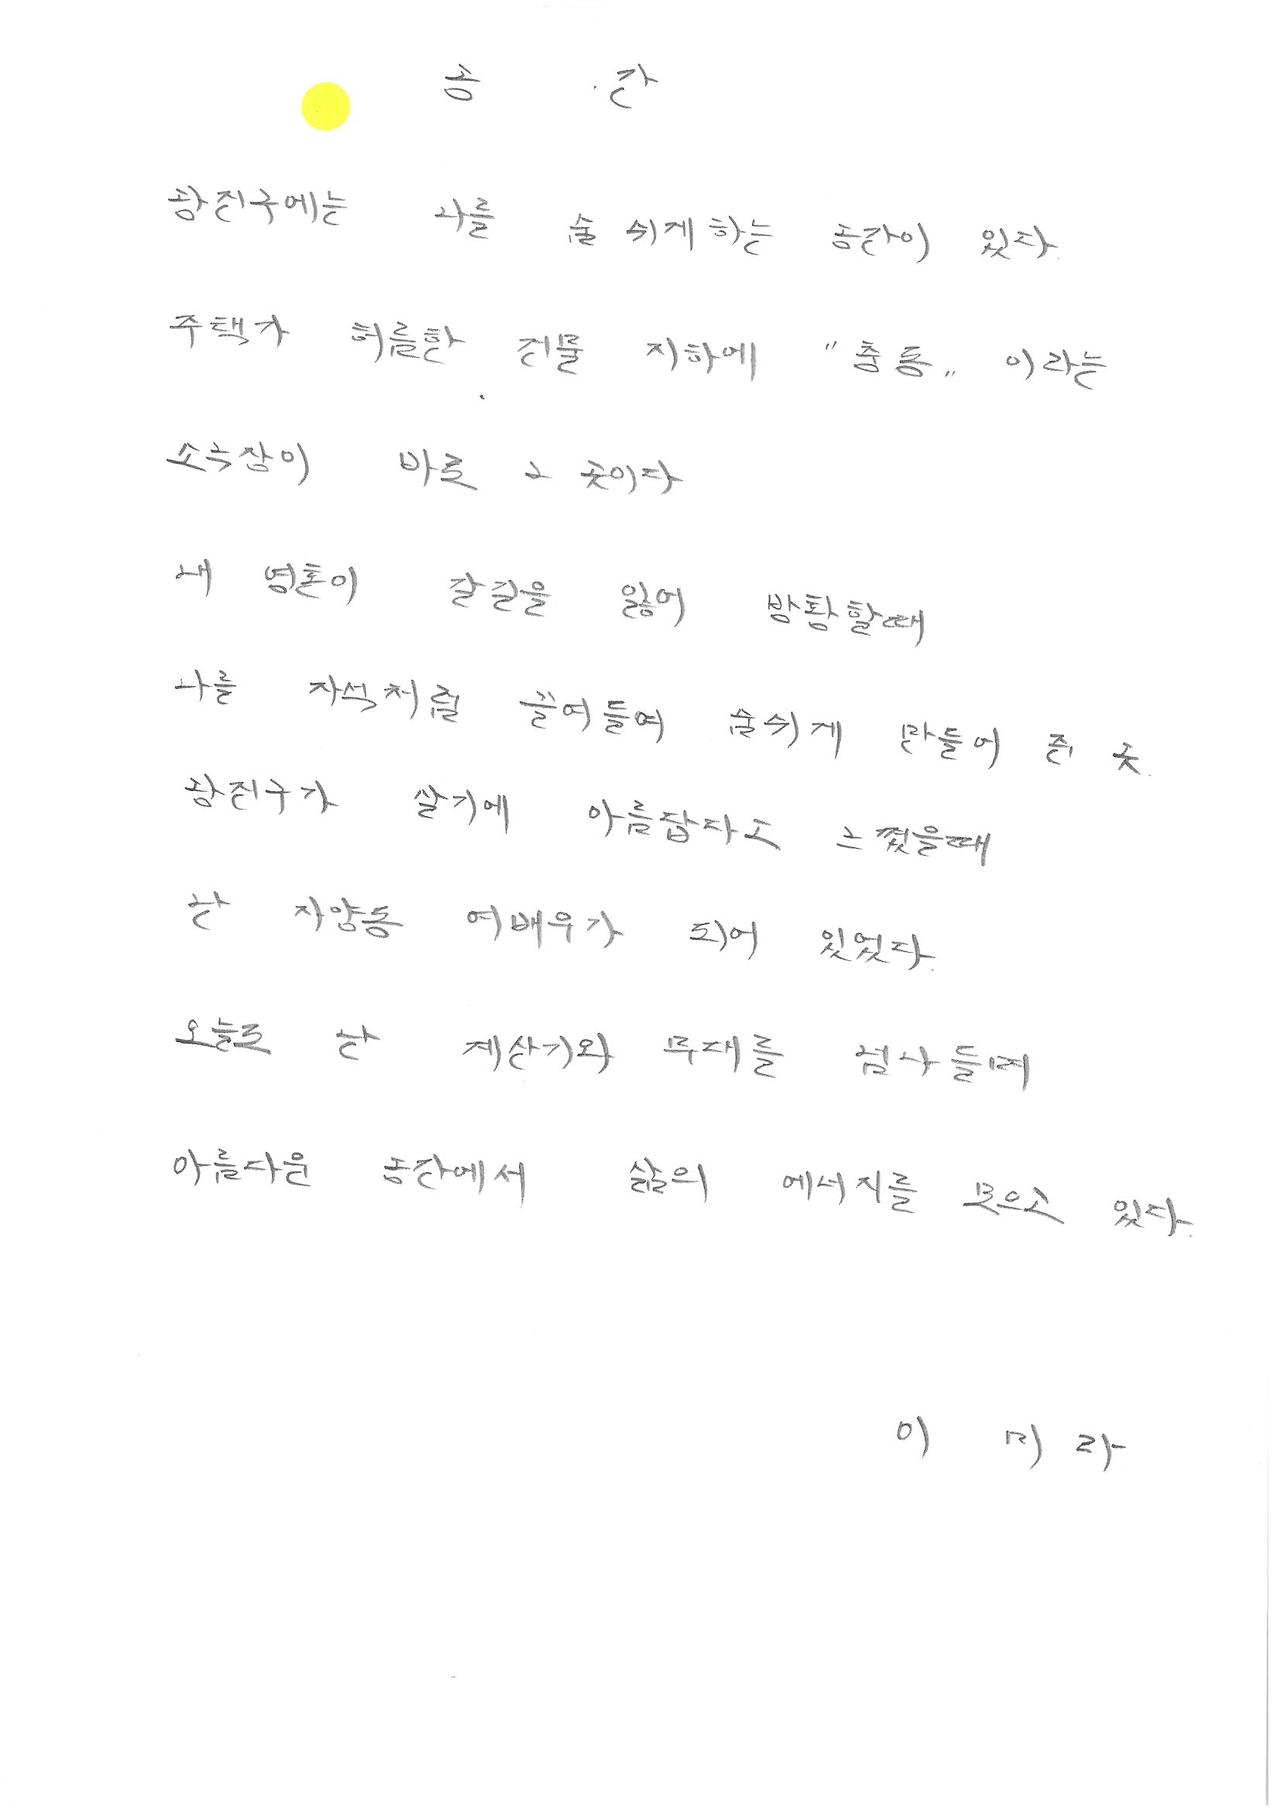 공 간
광진구에는 나를 숨 쉬게하는 공간이 있다.
주택가 허름한 건물 지하에 "충동" 이라는
소극장이 바로 그 곳이다
내 영혼이 갈길을 잃어 방황할때
나를 자석처럼 끌여들여 숨쉬게 만들어 준 곳.
광진구가 살기에 아름답다고 느꼈을때
난 자양동 여배우가 되어 있었다.
오늘도 난 계산기와 무대를 넘나들며
아름다운 공간에서 삶의 에너지를 모으고 있다.
이 미 라